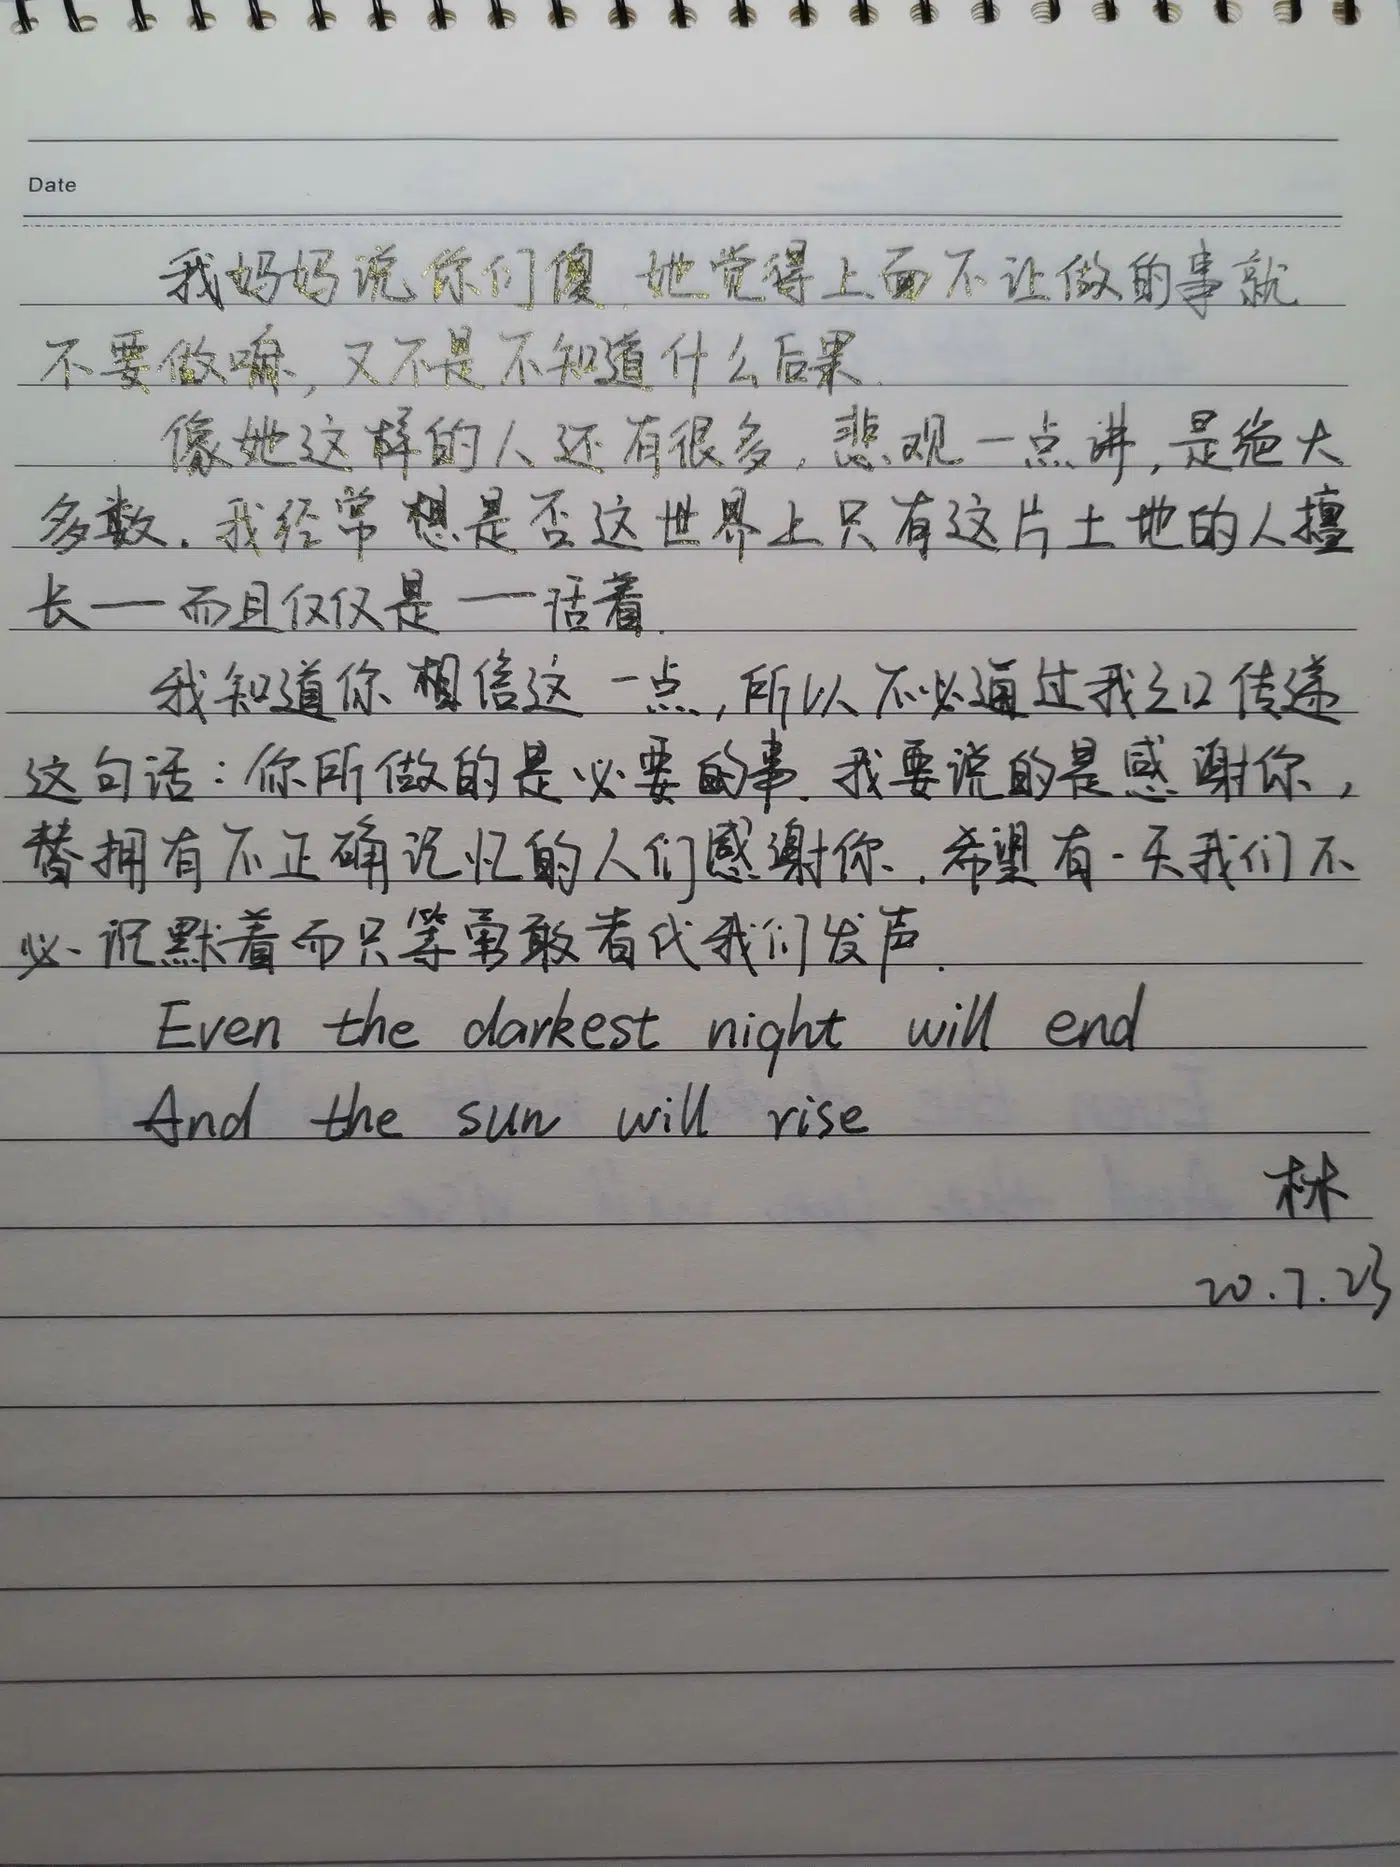 Date
我妈妈说你们傻.她觉得上面不让做的事就
不要做嘛,又不是不知道什么后果.
像她这样的人还有很多,悲观一点讲,是绝大
多数.我经常想是否这世界上只有这片土地的人擅
长——而且仅仅是——活着.
我知道你相信这一点,所以不必通过我之口传递
这句话:你所做的是必要的事.我要说的是感谢你,
替拥有不正确记忆的人们感谢你.希望有一天我们不
必沉默着而只等勇敢者代我们发声.
Even the darkest night will end
And the sun will rise
林
20.7.23